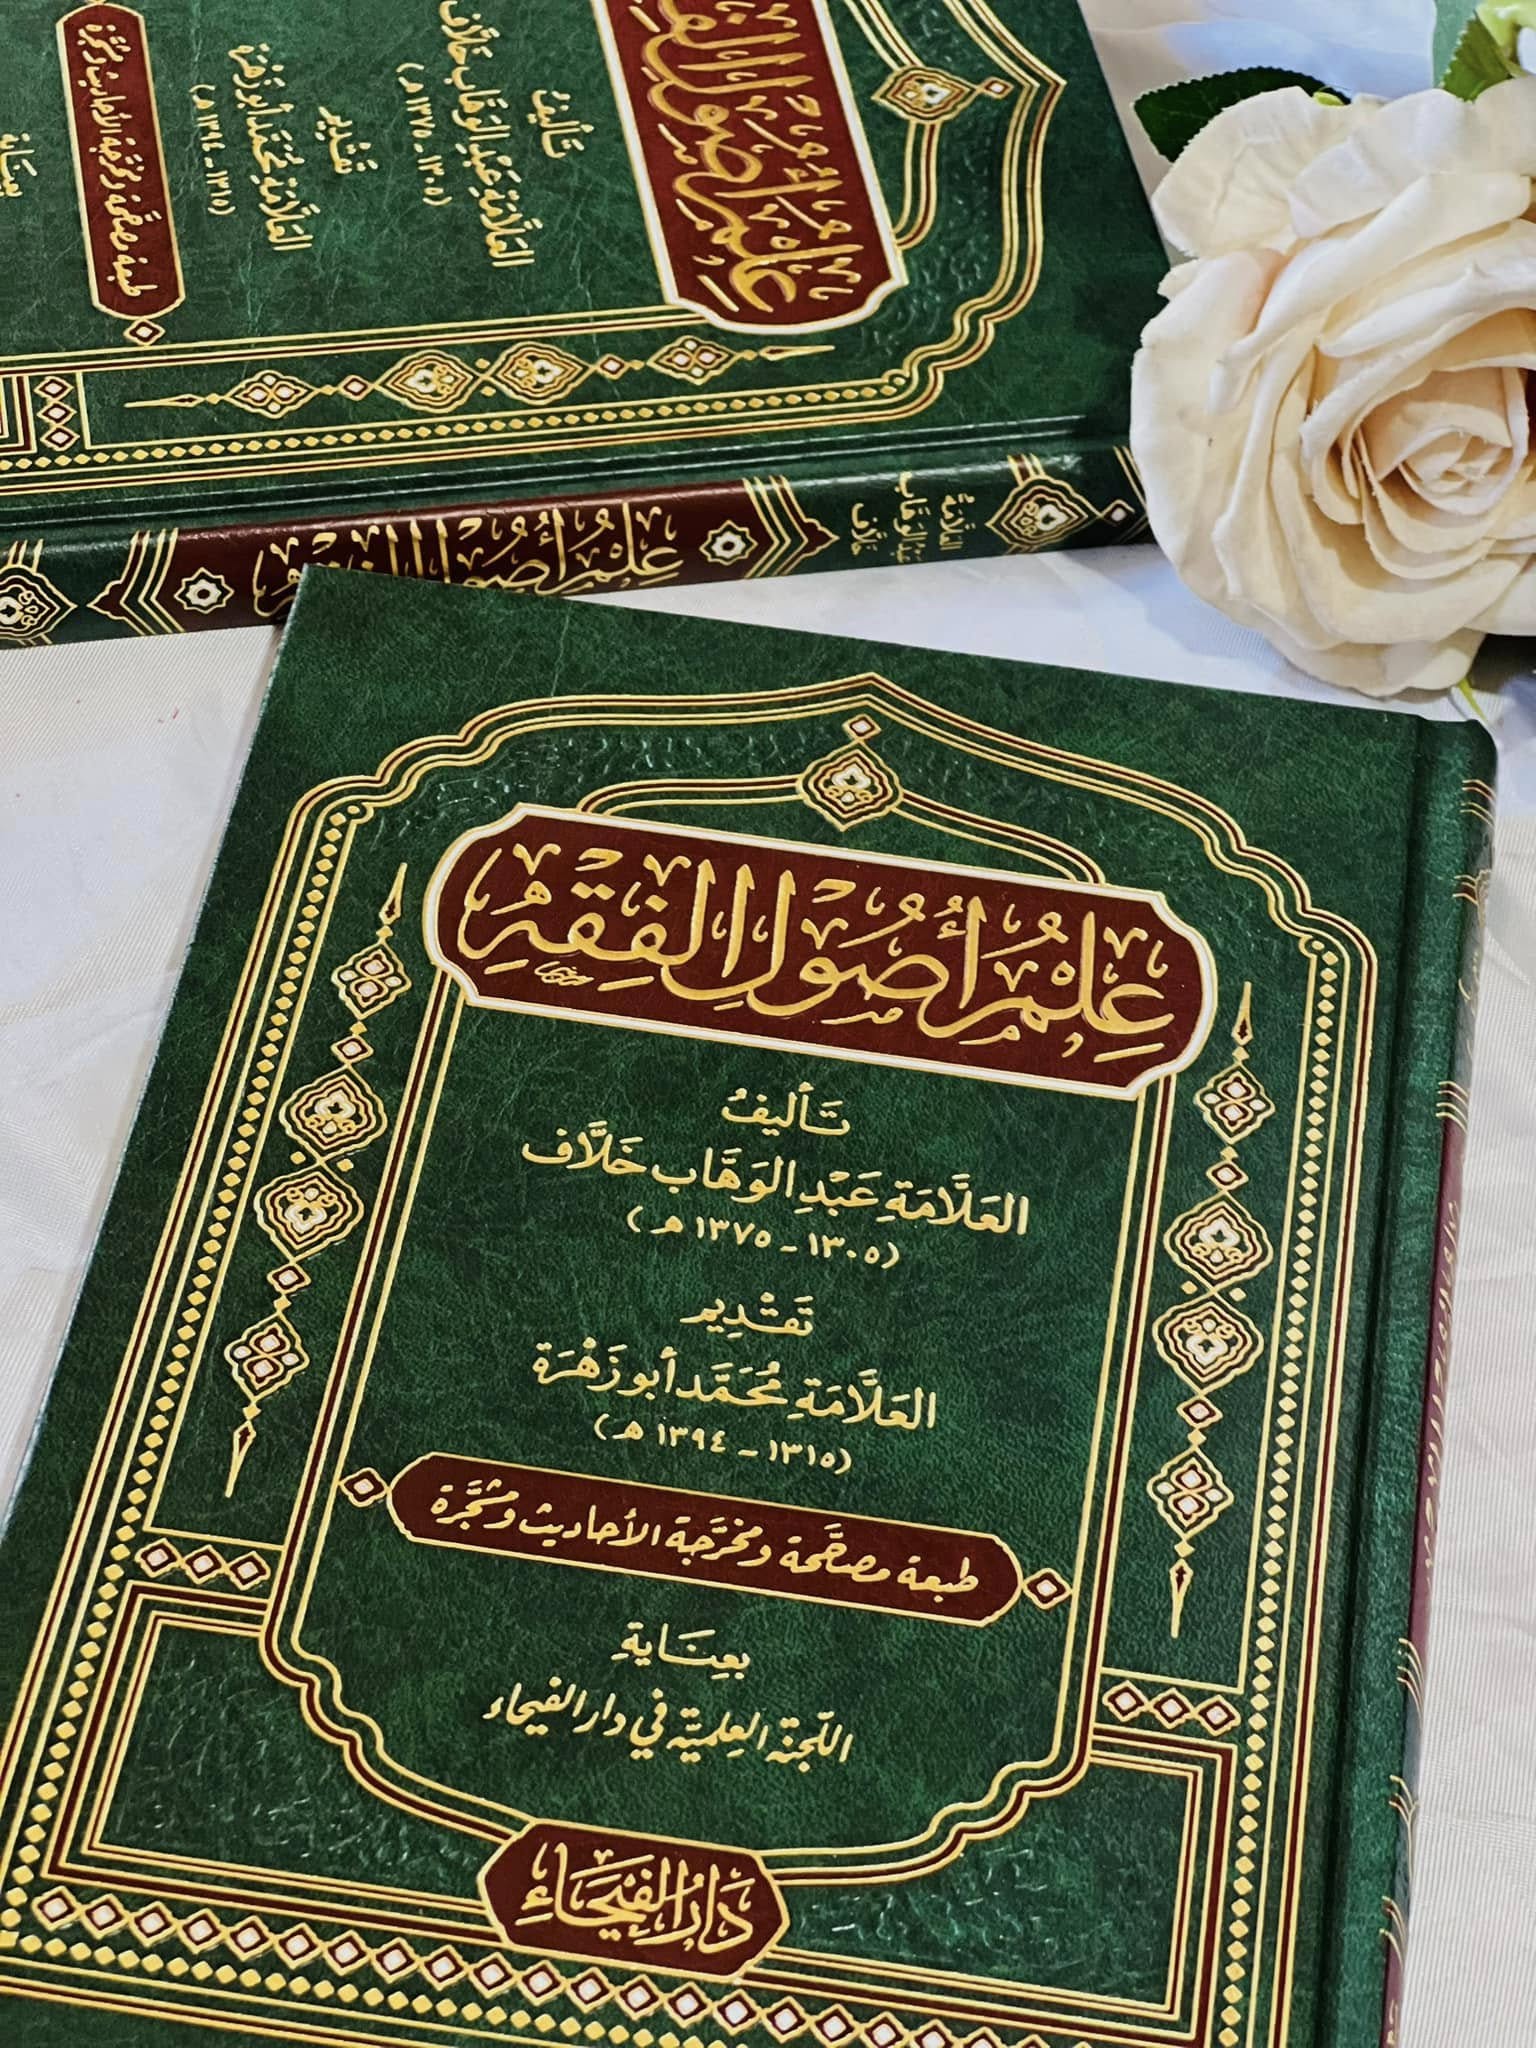 علم أصول الف
تأليف
العلامة عبد الوهاب خلاف
(١٣٠٥ - ١٣٧٥ هـ)
تقديم
العلامة محمد أبو زهرة
(١٣١٥ - ١٣٩٤ هـ)
طبعة مصححة ومخرجة الأحاديث ومشجرة
علم أصول الفقه
العلامة
عبد الوهاب
خلاف
عِلْمُ أُصُولِ الفِقْهِ
تَأليفُ
العَلَّامَةِ عَبْدِ الوَهَّاب خَلَّاف
(١٣٠٥ - ١٣٧٥ هـ)
تَقْدِيم
العَلَّامَةِ مُحَمَّد أبو زَهْرَة
(١٣١٥ - ١٣٩٤ هـ)
طبعة مصحَّحة ومخرَّجة الأحاديث ومشجَّرة
بعِنَايَةِ
اللّجنة العِلميّة في دار الفيحاء
دَارُ الفَيْحَاءِ